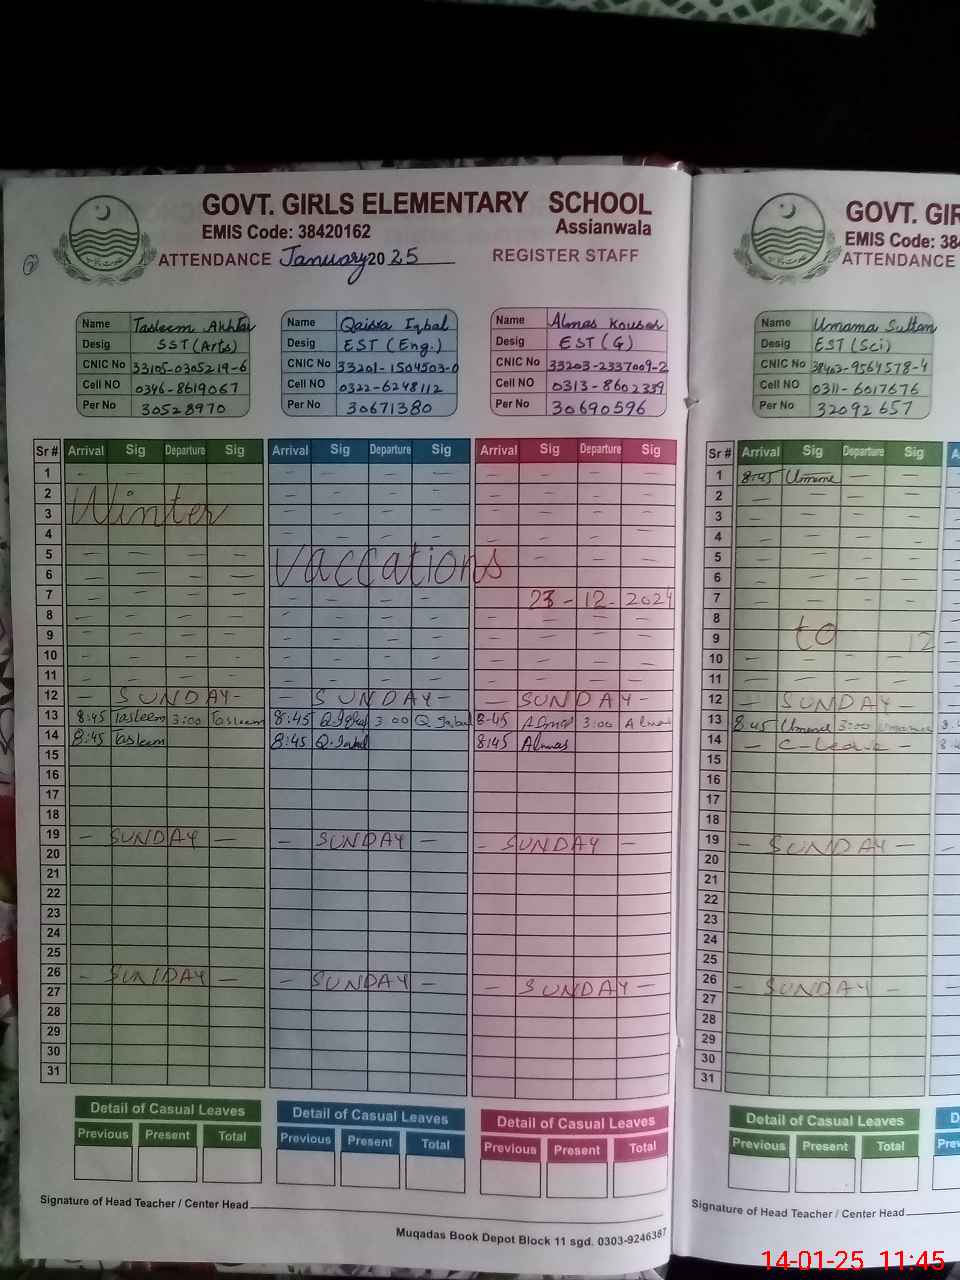 GOVT. GIRLS ELEMENTARY SCHOOL
EMIS Code: 38420162
Assianwala
ATTENDANCE January 2025 REGISTER STAFF
Name Tasleem Akhtar
Desig SST (Arts)
CNIC No 33105-0305219-6
Cell NO 0346-8619067
Per No 30528970
Name Qaisra Iqbal
Desig EST (Eng.)
CNIC No 33201-1504503-0
Cell NO 0322-6248112
Per No 30671380
Name Almas Kousar
Desig EST (G)
CNIC No 33203-2337009-2
Cell NO 0313-8602359
Per No 30690596
Sr # Arrival Sig Departure Sig Arrival Sig Departure Sig Arrival Sig Departure Sig
1 - - - - - - - - - - -
2
3 Winter
4
5
6 Vaccations
7 23-12-2024
8
9
10
11
12 - SUNDAY - - SUNDAY - - SUNDAY -
13 8:45 Tasleem 3:00 Tasleem 8:45 Q.Iqbal 3:00 Q Iqbal 8:45 Almas 3:00 Almas
14 8:45 Tasleem 8:45 Q.Iqbal 8:45 Almas
15
16
17
18
19 - SUNDAY - - SUNDAY - - SUNDAY -
20
21
22
23
24
25
26 - SUNDAY - - SUNDAY - - SUNDAY -
27
28
29
30
31
Detail of Casual Leaves Detail of Casual Leaves Detail of Casual Leaves
Previous Present Total Previous Present Total Previous Present Total
Signature of Head Teacher / Center Head
Muqadas Book Depot Block 11 sgd. 0303-9246367
GOVT. GIR
EMIS Code: 384
ATTENDANCE
Name Umama Sultan
Desig EST (Sci)
CNIC No 38403-9564578-4
Cell NO 0311-6017676
Per No 32092657
Sr # Arrival Sig Departure Sig
1 8:45 Umama - -
2
3
4
5
6
7
8
9 to 12
10
11
12 - SUNDAY -
13 8:45 Umama 3:00 Umama
14 - C-Leave -
15
16
17
18
19 - SUNDAY -
20
21
22
23
24
25
26 - SUNDAY -
27
28
29
30
31
Detail of Casual Leaves
Previous Present Total
Signature of Head Teacher / Center Head
14-01-25 11:45